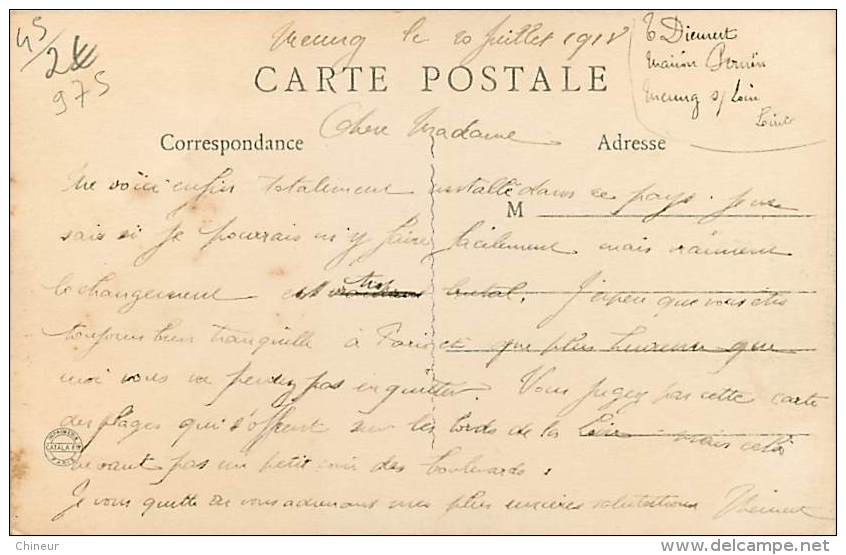 45/
24
975
Meung le 20 Juillet 1918
T Dieuert
Maison Perrin
Meung s/ Loire
Loiret
CARTE POSTALE
Chere Madame
Correspondance
Adresse
Me voici enfin totalement installé dans ce pays. Je ne
M
sais si je pourrais m'y faire facilement mais vraiment
le changement est trop brutal. J'espère que vous êtes
toujours bien tranquille à Paris et que plus heureuse que
moi vous ne pensez pas inquietter. Vous jugez par cette carte
des plages qui s'offrent sur les bords de la Loire mais cela
ne vaut pas un petit coin des boulevards.
Je vous quitte en vous adressant mes plus sincères salutations
IMPRIMERIE
CATALA F.
PARIS
Chineur
delcampe.net